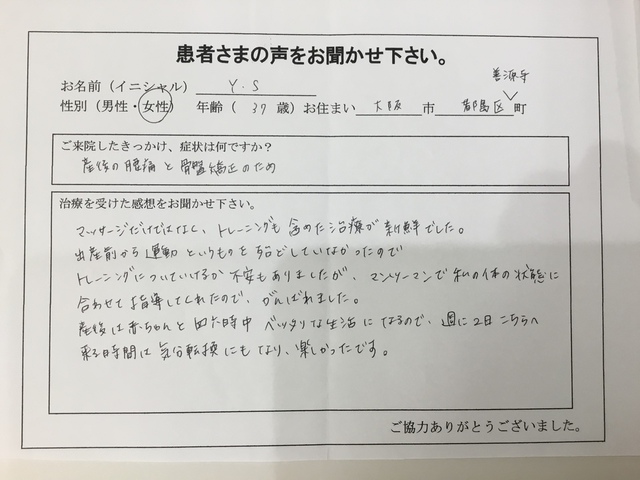 患者さまの声をお聞かせ下さい。
お名前（イニシャル） Y.S
善源寺
性別（男性・女性） 年齢（ 37 歳）お住まい 大阪 市 都島区 町
ご来院したきっかけ、症状は何ですか？
産後の腰痛と骨盤矯正のため
治療を受けた感想をお聞かせ下さい。
マッサージだけではなく、トレーニングも含めた治療が新鮮でした。
出産前から運動というものを殆どしていなかったので
トレーニングについていけるか不安もありましたが、マンツーマンで私の体の状態に
合わせて指導してくれたので、がんばれました。
産後は赤ちゃんと四六時中ベッタリな生活になるので、週に2日こちらへ
来る時間は気分転換にもなり、楽しかったです。
ご協力ありがとうございました。